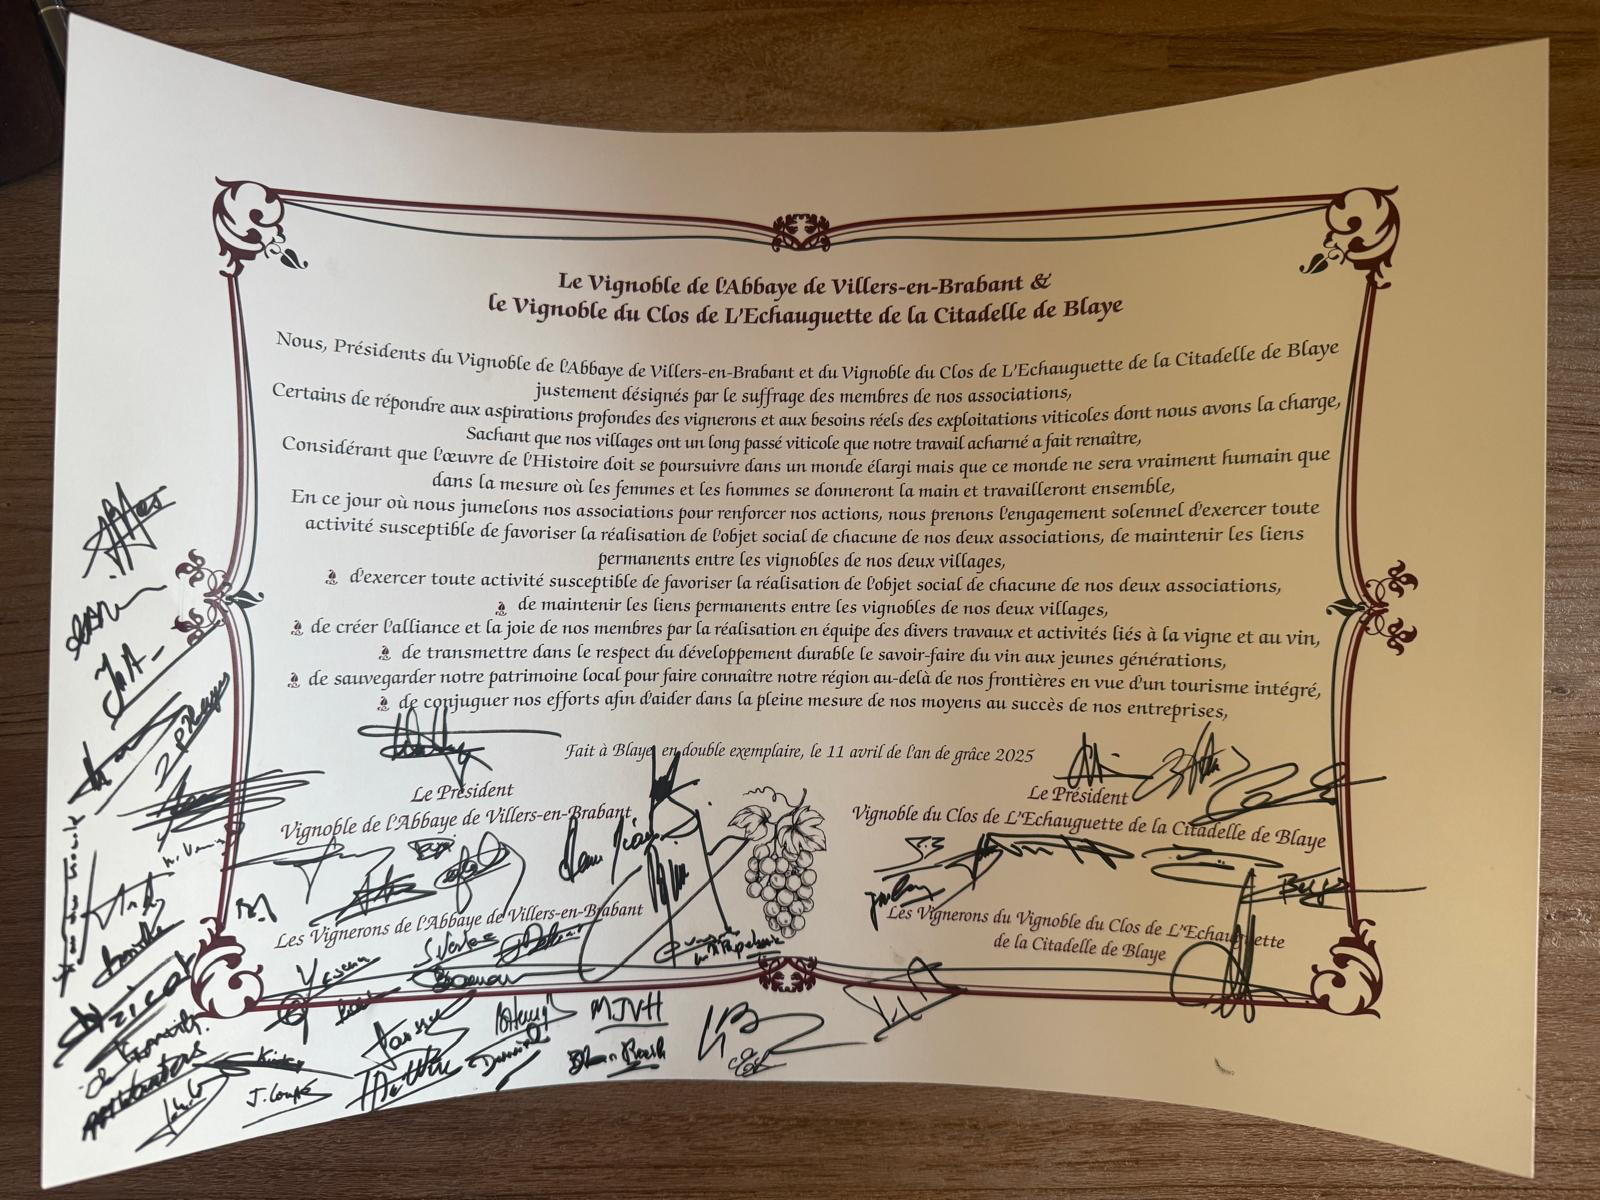 Le Vignoble de l'Abbaye de Villers-en-Brabant &
le Vignoble du Clos de L'Echauguette de la Citadelle de Blaye
Nous, Présidents du Vignoble de l'Abbaye de Villers-en-Brabant et du Vignoble du Clos de L'Echauguette de la Citadelle de Blaye
justement désignés par le suffrage des membres de nos associations,
Certains de répondre aux aspirations profondes des vignerons et aux besoins réels des exploitations viticoles dont nous avons la charge,
Sachant que nos villages ont un long passé viticole que notre travail acharné a fait renaître,
Considérant que l'œuvre de l'Histoire doit se poursuivre dans un monde élargi mais que ce monde ne sera vraiment humain que
dans la mesure où les femmes et les hommes se donneront la main et travailleront ensemble,
En ce jour où nous jumelons nos associations pour renforcer nos actions, nous prenons l'engagement solennel d'exercer toute
activité susceptible de favoriser la réalisation de l'objet social de chacune de nos deux associations, de maintenir les liens
permanents entre les vignobles de nos deux villages,
d'exercer toute activité susceptible de favoriser la réalisation de l'objet social de chacune de nos deux associations,
de maintenir les liens permanents entre les vignobles de nos deux villages,
de créer l'alliance et la joie de nos membres par la réalisation en équipe des divers travaux et activités liés à la vigne et au vin,
de transmettre dans le respect du développement durable le savoir-faire du vin aux jeunes générations,
de sauvegarder notre patrimoine local pour faire connaître notre région au-delà de nos frontières en vue d'un tourisme intégré,
de conjuguer nos efforts afin d'aider dans la pleine mesure de nos moyens au succès de nos entreprises,
Fait à Blaye, en double exemplaire, le 11 avril de l'an de grâce 2025
Le Président
Vignoble de l'Abbaye de Villers-en-Brabant
Le Président
Vignoble du Clos de L'Echauguette de la Citadelle de Blaye
Les Vignerons de l'Abbaye de Villers-en-Brabant
Les Vignerons du Vignoble du Clos de L'Echauguette
de la Citadelle de Blaye
MJVH